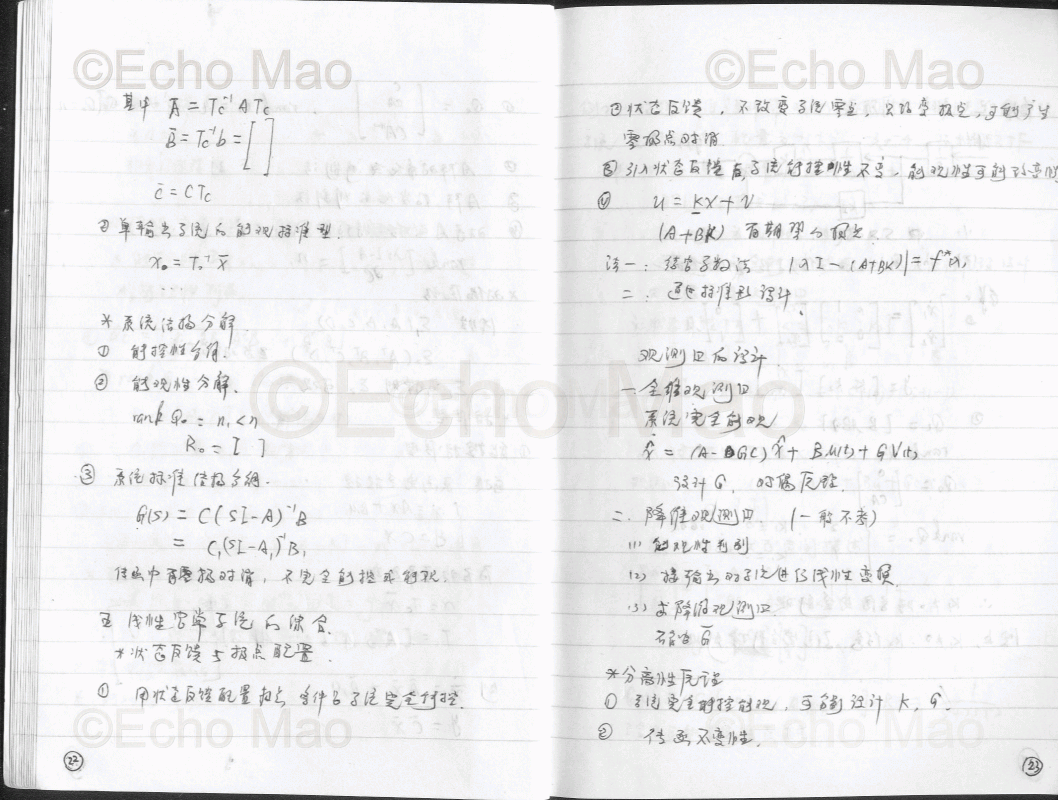 ©Echo Mao
其中 Ā = Tc⁻¹ A Tc
B̄ = Tc⁻¹ b = [ ]
c̄ = C Tc
② 单输出系统的能观标准型.
x₀ = T₀⁻¹ x̄
* 系统结构分解.
① 能控性分解.
② 能观性分解.
rank Q₀ = n₁ < n
R₀ = [ ]
③ 系统标准结构分解.
G(s) = C(SI-A)⁻¹B
= C₁(SI-A₁)⁻¹B₁
传函中有零极对消, 不完全能控或能观
五 线性定常系统的综合.
*状态反馈与极点配置.
① 用状态反馈配置极点 条件为系统完全能控.
©Echo Mao
22
©Echo Mao
©Echo Mao
② 状态反馈, 不改变系统零点, 只改变极点, 可能产生
零极点对消
③ 引入状态反馈后系统能控性不变, 能观性可能改变
④ u = Kx + V
(A+BK) 有期望的极点
法一. 待定系数法 |λI-(A+BK)| = f*(λ)
二. 通过标准型设计.
观测器的设计
一. 全维观测器
系统完全能观
x̂ = (A-GC)x̂ + Bu(t) + GV(t)
设计G, 对偶原理.
二. 降维观测器 (一般不考)
(1) 能观性判别
(2) 按输出对系统进行线性变换.
(3) 求降维观测器
Ḡ
*分离性原理
① 系统完全能控能观, 可分别设计 K, G.
② 传函不变性.
©Echo Mao
23